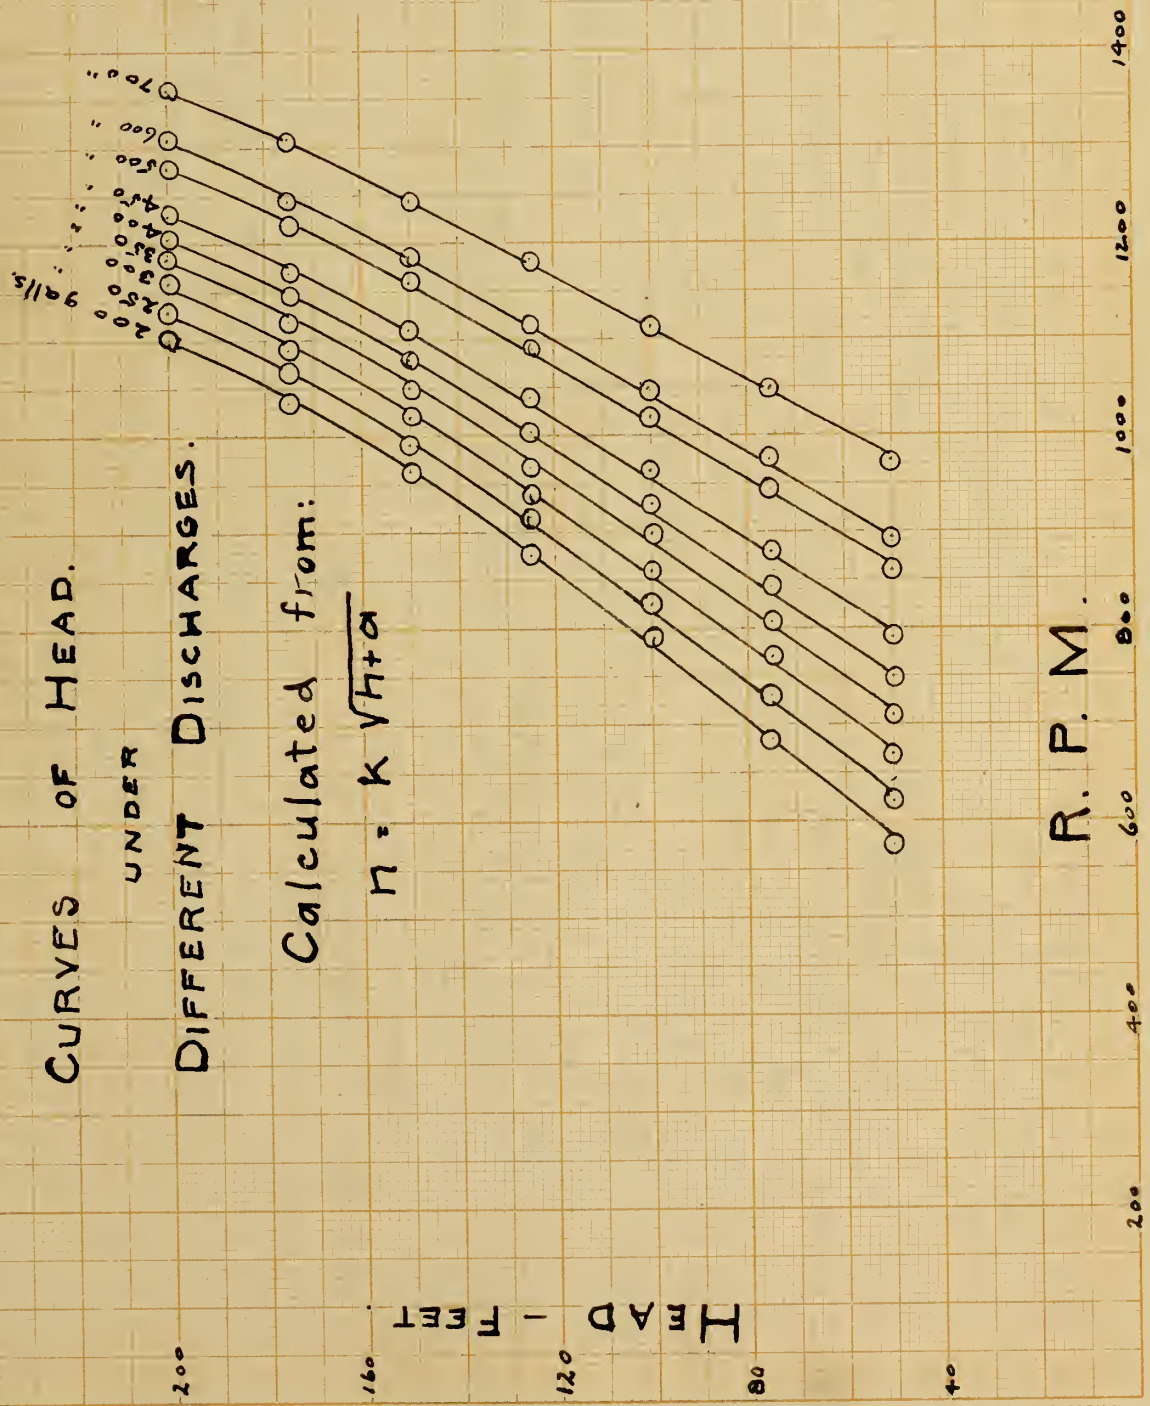 CURVES OF HEAD.
UNDER
DIFFERENT DISCHARGES.
Calculated from:
n = K √h+a
200 galls.
250 "
300 "
350 "
400 "
450 "
500 "
600 "
700 "
HEAD - FEET
200
160
120
80
40
R. P. M.
200
400
600
800
1000
1200
1400